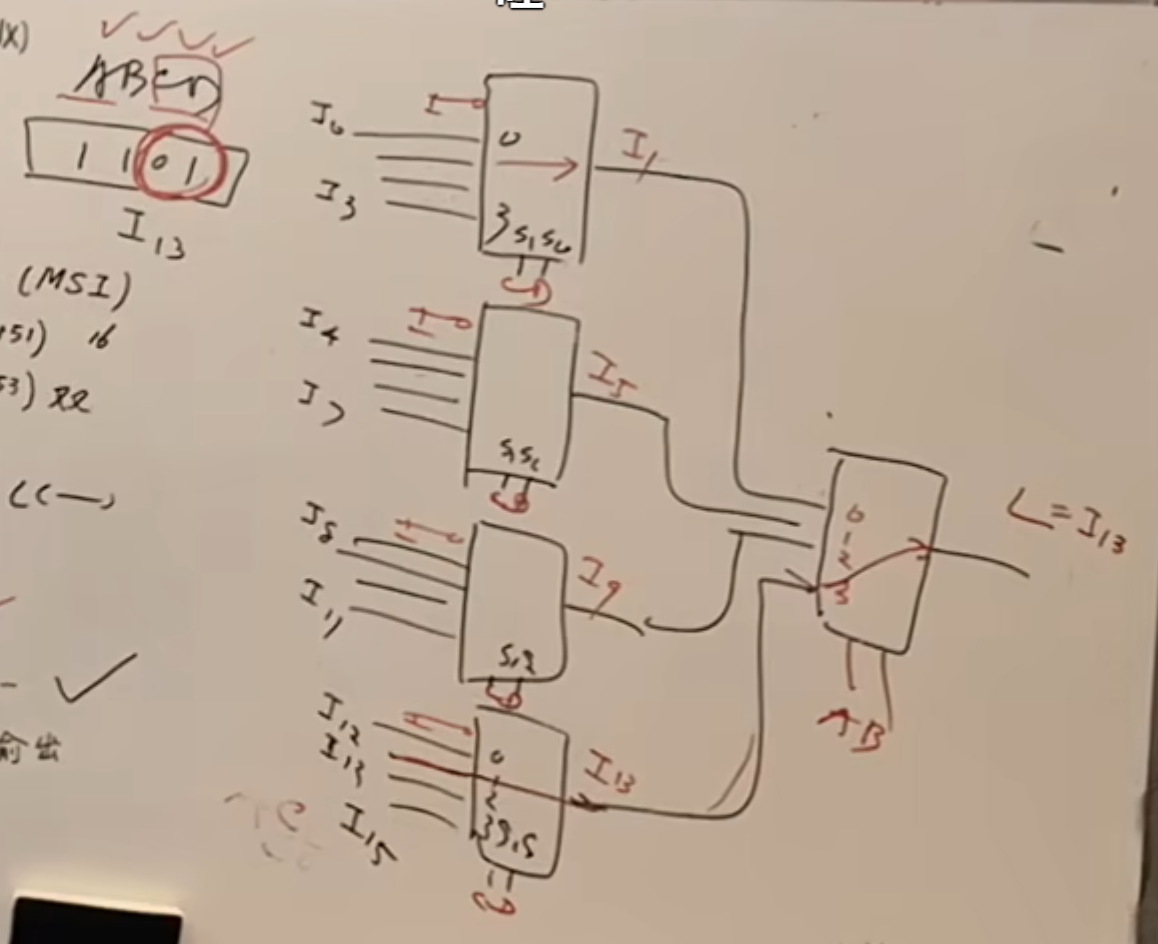 X)
ABCD
1 1 0 1
I13
(MSI)
151) 16
53) 双
输出
I0
I3
I
0
3 S1 S0
CD
I1
I4
I7
I
S1 S0
CD
I5
I8
I11
I
S1 S0
CD
I9
I12
I13
I15
I
0
1
2
3 S1 S0
CD
I13
0
1
2
3
AB
L=I13
C